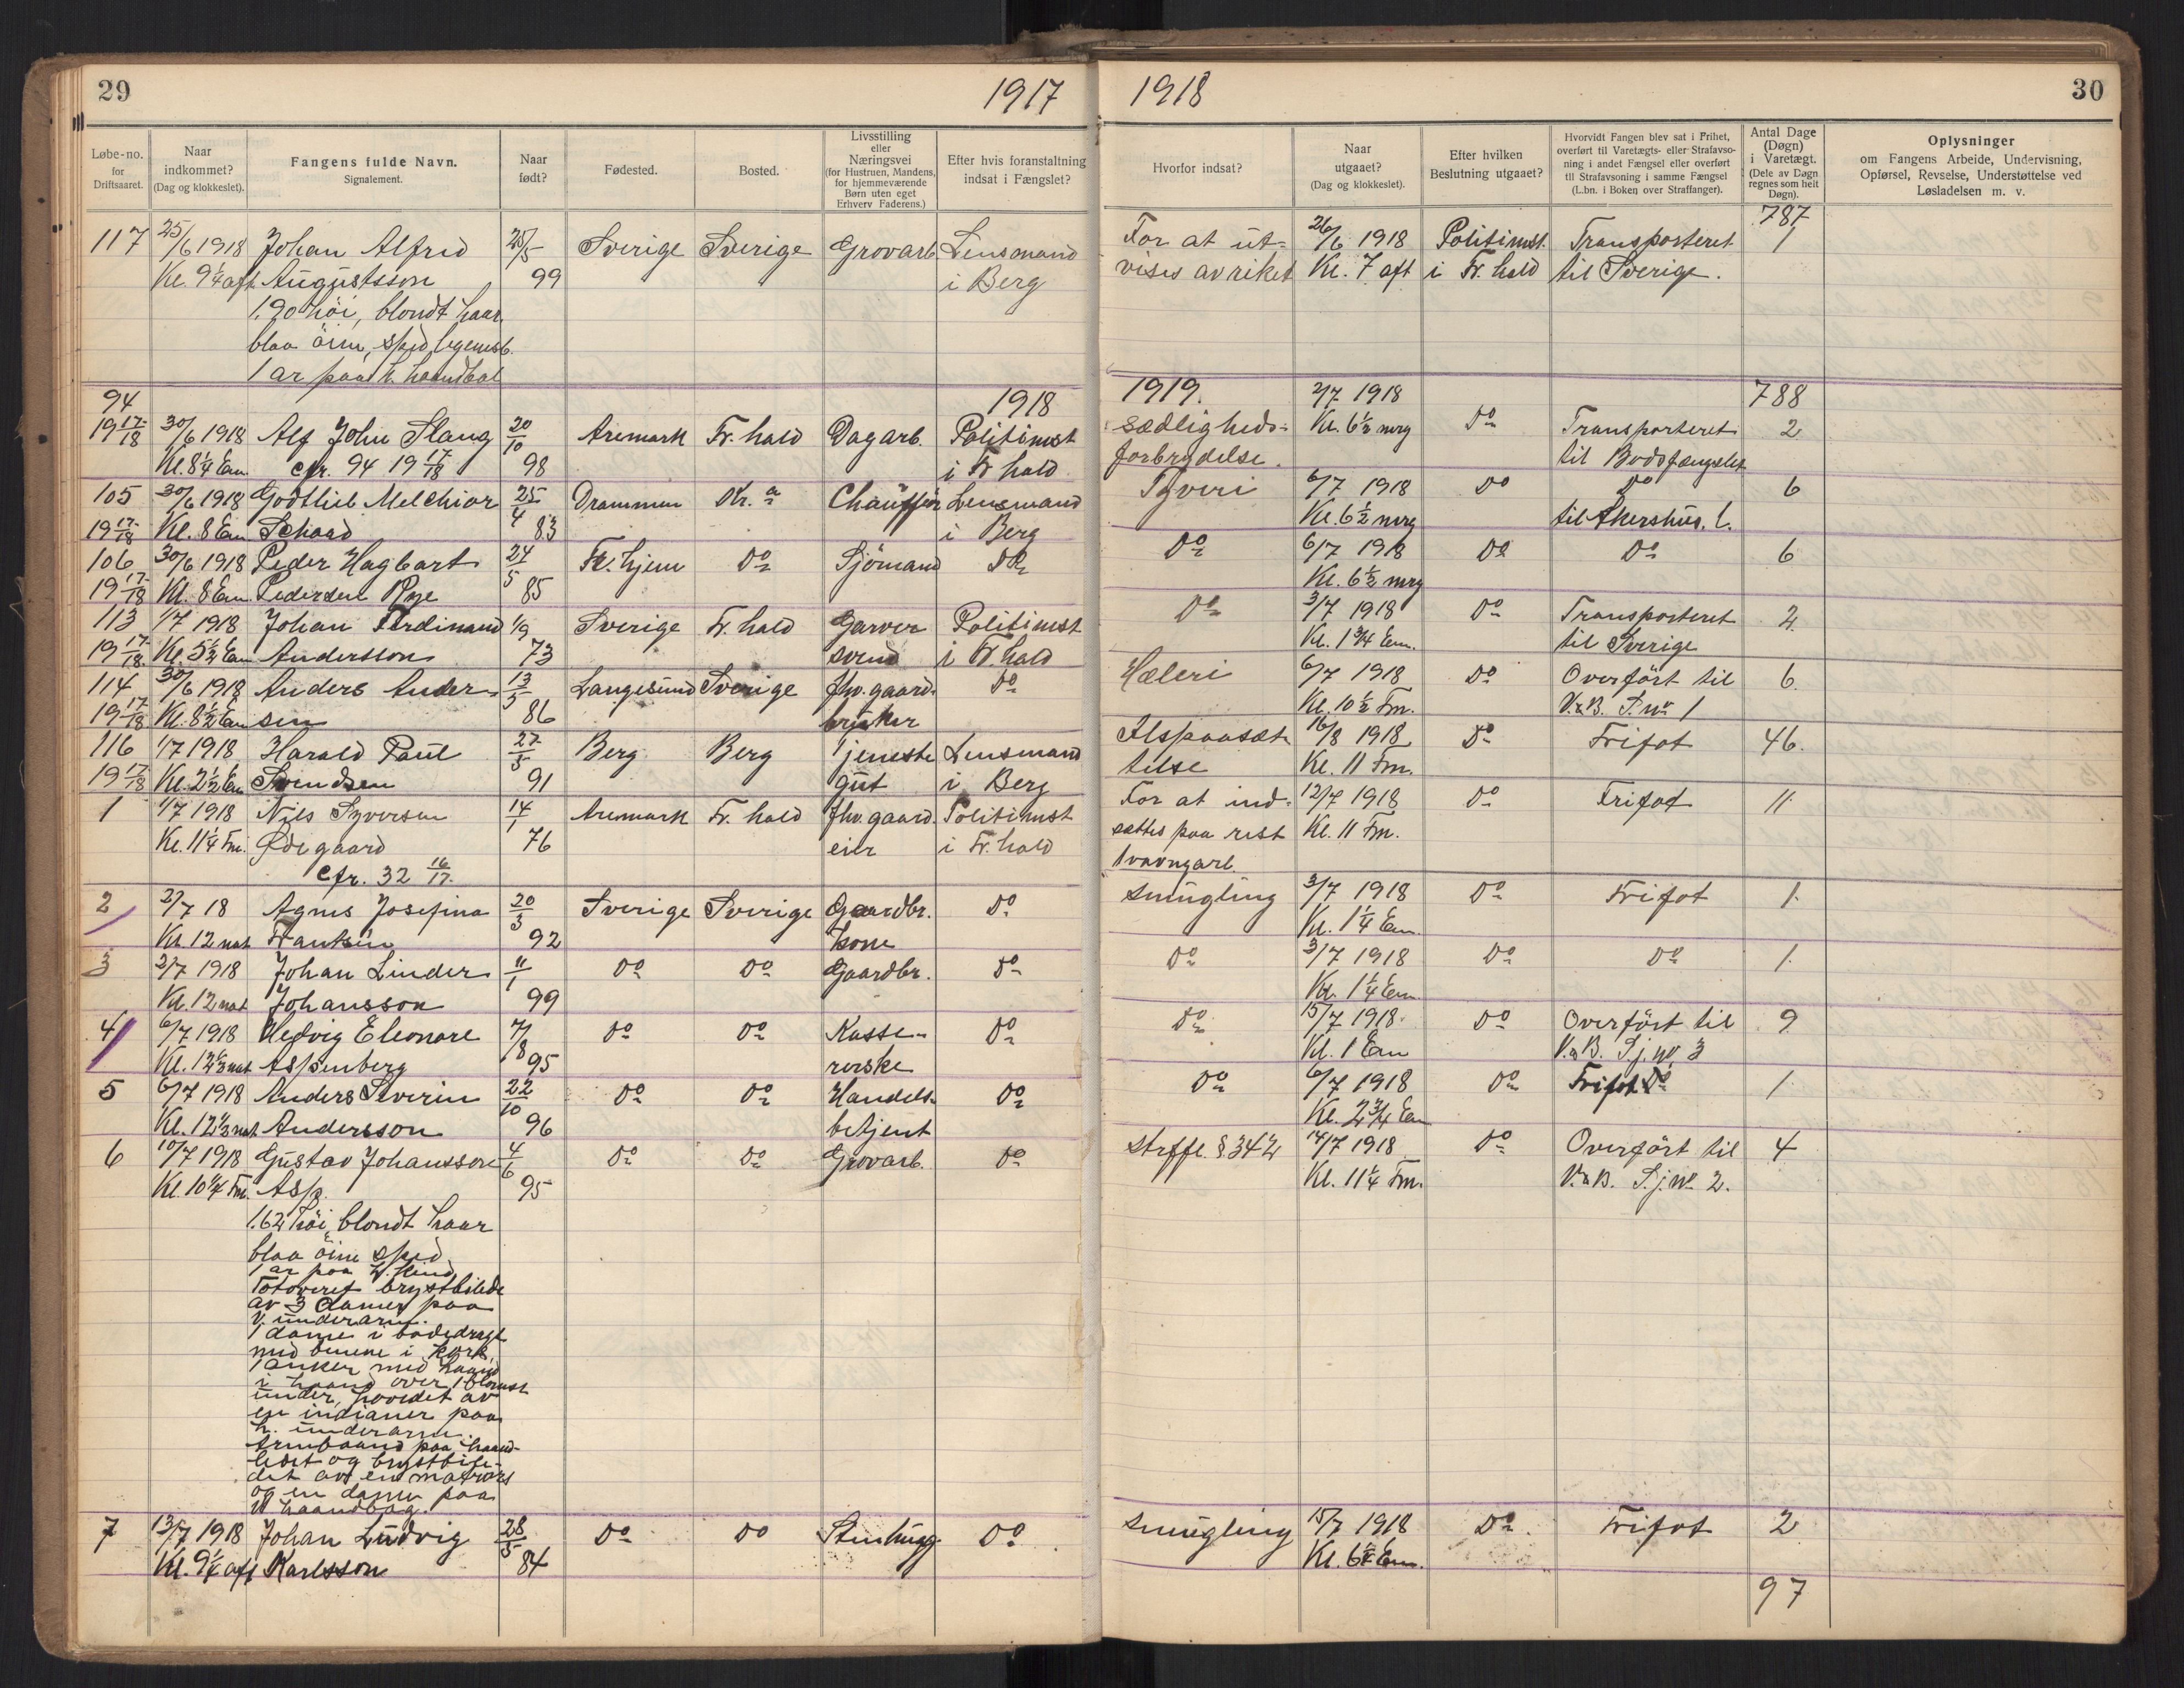 29
1917
Løbe-no. for Driftsaaret.
Naar indkommet? (Dag og klokkeslet).
Fangens fulde Navn. Signalement.
Naar født?
Fødested.
Bosted.
Livsstilling eller Næringsvei (for Hustruen, Mandens, for hjemmeværende Børn uten eget Erhverv Faderens.)
Efter hvis foranstaltning indsat i Fængslet?
117 25/6 1918 Johan Alfred 25/5 Sverige Sverige Grovarb. Lensmand
Kl. 9¼ aft Augustsson 99 i Berg
1.90 höi, blondt haar
blaa öine, sped legemsb.
1 ar paa h. haandbal
94 1918
19 17/18 30/6 1918 Alf John Slang 20/10 Aremark Fr.hald Dagarb. Politimst
Kl. 8¼ Em. cfr. 94 19 17/18 98 i Fr hald
105 30/6 1918 Godtlieb Melchior 25/4 Drammen Kr.a Chauffør Lensmand
19 17/18 Kl. 8 Em Schaad 83 i Berg
106 30/6 1918 Peder Hagbart 24/5 Do Sjömand Do
19 17/18 Kl. 8 Em Pedersen Rye 85
113 1/7 1918 Johan Ferdinand 1/9 Sverige Fr.hald Garver Politimst
19 17/18 Kl. 5½ Em Andersson 73 svend i Fr.hald
114 30/6 1918 Anders Ander- 13/5 Langesund Sverige fhv. gaard- Do
19 17/18 Kl. 8½ Em sen 86 bruker
116 1/7 1918 Harald Paul 27/5 Berg Berg Tjeneste Lensmand
19 17/18 Kl. 2½ Em Svendsen 91 gut i Berg
1 1/7 1918 Nils Syversen 14/1 Aremark Fr.hald fhv. gaard. Politimst
Kl. 11¼ Fm. Ödegaard 76 eier i Fr.hald
cfr. 32 16/17.
2 2/7 18 Agnes Josefina 20/3 Sverige Sverige Gaardbr. Do
Kl. 12 nat Frantsén 92 kone
3 2/7 1918 Johan Linder 11/1 Do Do Gaardbr. Do
Kl. 12 nat Johansson 99
4 6/7 1918 Hedvig Eleonore 7/8 Do Do Kasse- Do
Kl. 12½ nat Aspenberg 95 rerske
5 6/7 1918 Anders Severin 22/10 Do Do Handels- Do
Kl. 12½ nat Andersson 96 betjent
6 10/7 1918 Gustav Johansson 4/6 Do Do Grovarb. Do
Kl. 10¼ Fm. Asp. 95
1.62 höi, blondt haar
blaa öine sped
1 ar paa h. kind
Totoveret brystbilede
av 3 damer paa
v. underarm.
1 dame i badedragt
med benene i kork,
1 anker med haand
i haand over, 1 blomst
under, hovedet av
en indianer paa
h. underarm.
Armbaand paa haand-
ledet og brystbile-
det av en matros
og en dame paa
haandbag.
7 13/7 1918 Johan Ludvig 28/5 Do Do Stenhugg. Do
Kl. 9¼ aft Karlsson 84
1918
30
Hvorfor indsat?
Naar utgaaet? (Dag og klokkeslet).
Efter hvilken Beslutning utgaaet?
Hvorvidt Fangen blev sat i Frihet, overført til Varetægts- eller Strafavsoning i andet Fængsel eller overført til Strafavsoning i samme Fængsel (L.bn. i Boken over Straffanger).
Antal Dage (Døgn) i Varetægt. (Dele av Døgn regnes som helt Døgn).
Oplysninger om Fangens Arbeide, Undervisning, Opførsel, Revselse, Understøttelse ved Løsladelsen m. v.
787
For at ut- 26/6 1918 Politimst. Transporteret 1
vises av riket Kl. 7 aft i Fr.hald til Sverige.
1919. 2/7 1918 788
sædligheds- Kl. 6½ mrg Do Transporteret 2
forbrydelse. til Bodsfængslet
Tyveri 6/7 1918 Do Do 6
Kl. 6½ mrg til Akershus. l.
Do 6/7 1918 Do Do 6
Kl. 6½ mrg
Do 3/7 1918 Do Transporteret 2.
Kl. 1¾ Em. til Sverige
Hæleri 6/7 1918 Do Overfört til 6.
Kl. 10½ Fm. V.&B. 1
Ilspaasæt- 16/8 1918 Do Frifot 46.
telse Kl. 11 Fm.
For at ind- 12/7 1918 Do Frifot 11.
sættes paa rest Kl. 11 Fm.
tvangarb.
Smugling 3/7 1918 Do Frifot 1.
Kl. 1¼ Em.
Do 3/7 1918 Do Do 1.
Kl. 1¼ Em.
Do 15/7 1918 Do Overfört til 9
Kl. 1 Em V.&B. S.j. No 3
Do 6/7 1918 Do Frifot 1
Kl. 2¾ Em
Strffl. § 342 14/7 1918 Do Overfört til 4
Kl. 11¼ Fm. V.&B. S.j. No 2.
Smugling 15/7 1918 Do Frifot 2
Kl. 6½ Em.
97